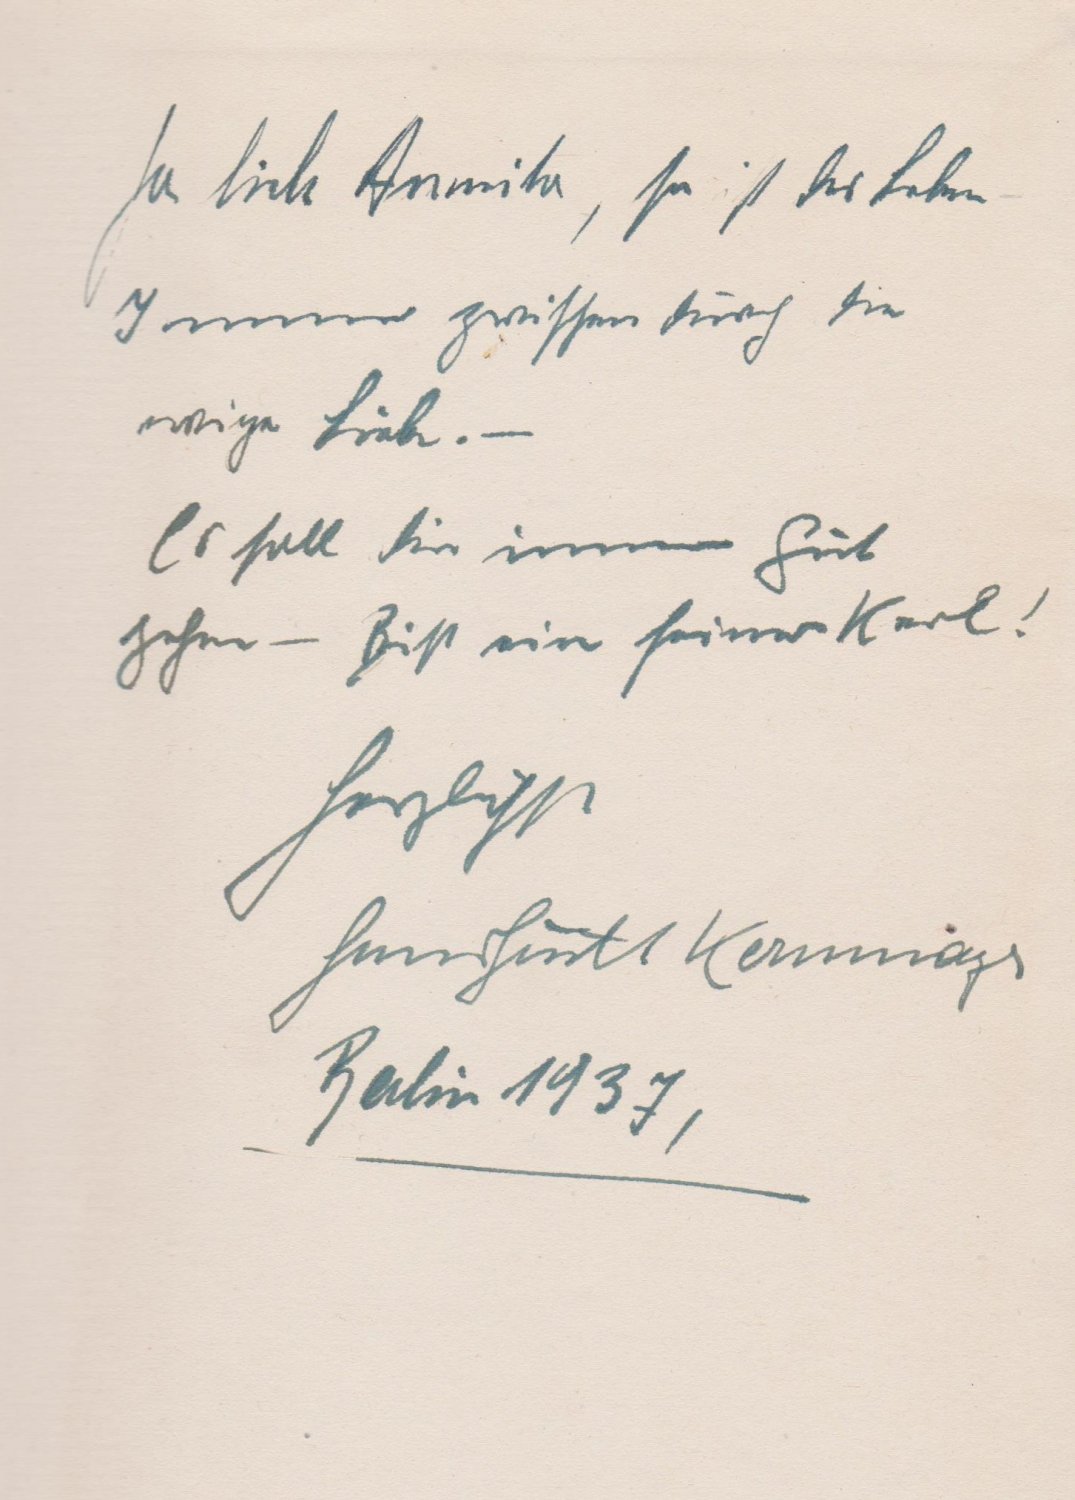 Ja liebe Annemila, so ist das Leben
Immer zwischendurch die
ewige Liebe. —
Es soll dir immer gut
gehen — Bist ein feiner Kerl!
Herzlichst
Hans Gustl Kernmayr
Berlin 1937,